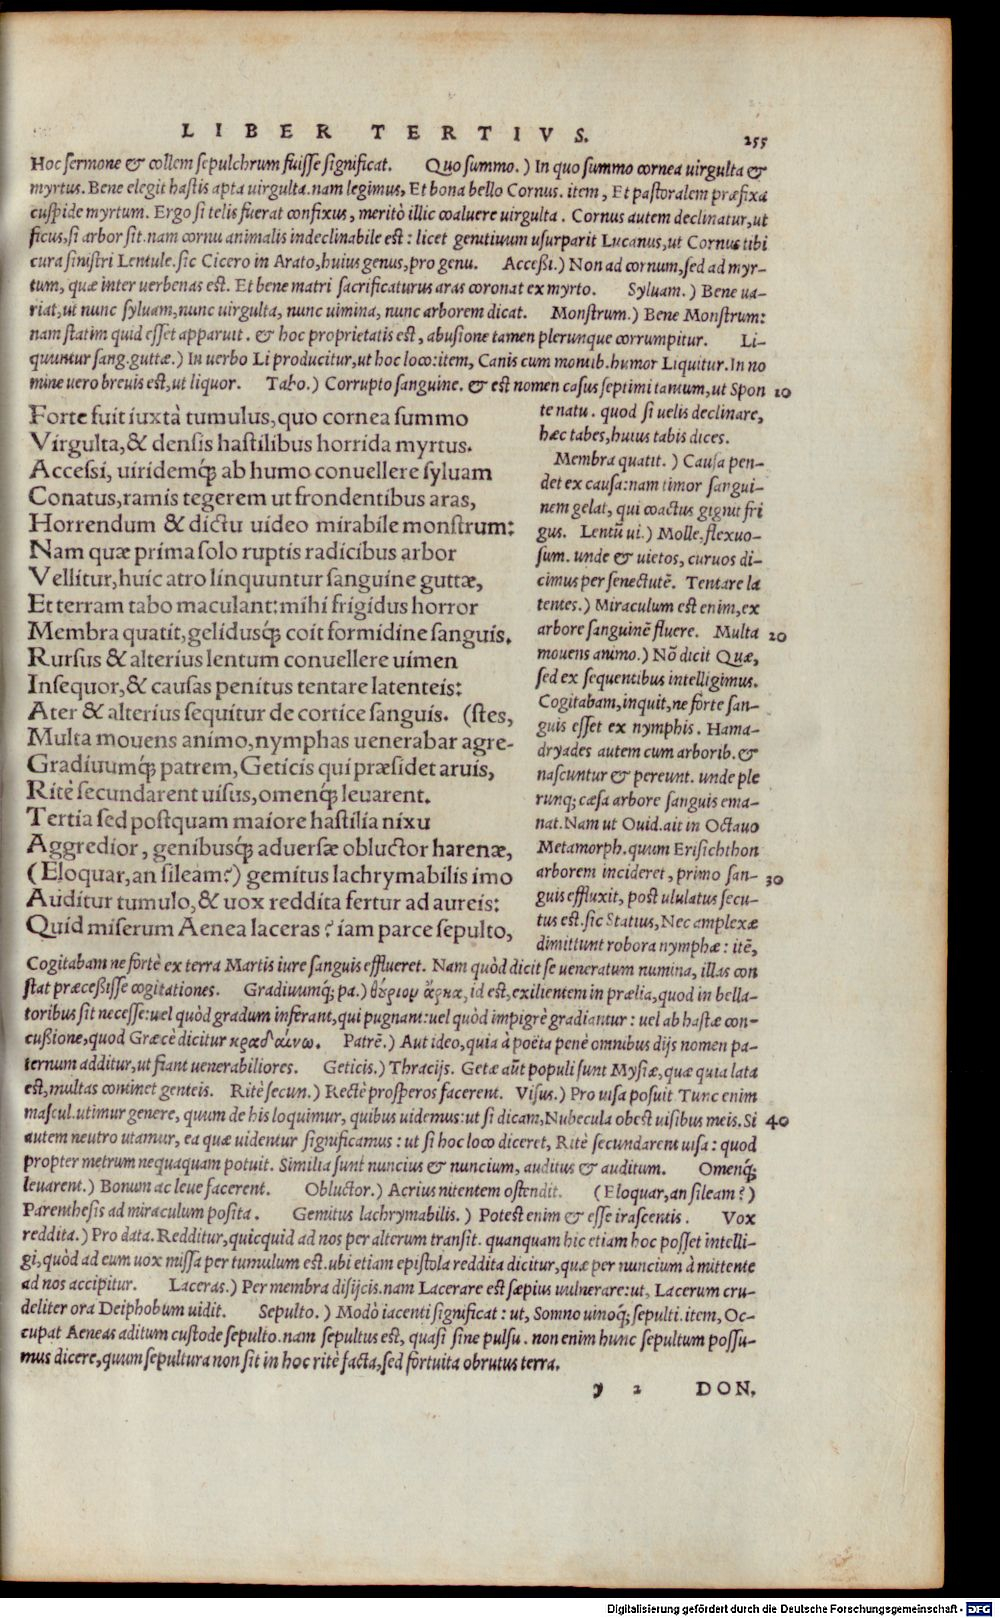 LIBER TERTIVS. 255
Hoc sermone & collem sepulchrum fuisse significat. Quo summo.) In quo summo cornea uirgulta &
myrtus. Bene elegit hastis apta uirgulta. nam legimus, Et bona bello Cornus. item, Et pastoralem præfixa
cuspide myrtum. Ergo si telis fuerat confixus, meritò illic coaluere uirgulta. Cornus autem declinatur, ut
ficus, si arbor sit. nam cornu animalis indeclinabile est: licet genitiuum usurparit Lucanus, ut Cornus tibi
cura sinistri Lentule. sic Cicero in Arato, huius genus, pro genu. Accessi.) Non ad cornum, sed ad myr-
tum, quæ inter uerbenas est. Et bene matri sacrificaturus aras coronat ex myrto. Syluam.) Bene ua-
riat, ut nunc syluam, nunc uirgulta, nunc uimina, nunc arborem dicat. Monstrum.) Bene Monstrum:
nam statim quid esset apparuit. & hoc proprietatis est, abusione tamen plerunque corrumpitur. Li-
quuntur sang. guttæ.) In uerbo Li producitur, ut hoc loco: item, Canis cum montib. humor Liquitur. In no
mine uero breuis est, ut liquor. Tabo.) Corrupto sanguine. & est nomen casus septimi tantum, ut Spon 10
Forte fuit iuxtà tumulus, quo cornea summo
Virgulta, & densis hastilibus horrida myrtus.
Accessi, uiridemq́; ab humo conuellere syluam
Conatus, ramis tegerem ut frondentibus aras,
Horrendum & dictu uideo mirabile monstrum:
Nam quæ prima solo ruptis radicibus arbor
Vellitur, huic atro linquuntur sanguine guttæ,
Et terram tabo maculant: mihi frigidus horror
Membra quatit, gelidusq́; coit formidine sanguis.
Rursus & alterius lentum conuellere uimen
Insequor, & causas penitus tentare latenteis:
Ater & alterius sequitur de cortice sanguis. (stes,
Multa mouens animo, nymphas uenerabar agre-
Gradiuumq́; patrem, Geticis qui præsidet aruis,
Ritè secundarent uisus, omenq́; leuarent.
Tertia sed postquam maiore hastilia nixu
Aggredior, genibusq́; aduersæ obluctor harenæ,
(Eloquar, an sileam?) gemitus lachrymabilis imo
Auditur tumulo, & uox reddita fertur ad aureis:
Quid miserum Aenea laceras? iam parce sepulto,
te natu. quod si uelis declinare,
hæc tabes, huius tabis dices.
Membra quatit.) Causa pen-
det ex causa: nam timor sangui-
nem gelat, qui coactus gignit fri
gus. Lentũ ui.) Molle, flexuo-
sum. unde & uietos, curuos di-
cimus per senectutẽ. Tentare la
tentes.) Miraculum est enim, ex
arbore sanguinẽ fluere. Multa 20
mouens animo.) Nõ dicit Quæ,
sed ex sequentibus intelligimus.
Cogitabam, inquit, ne forte san-
guis esset ex nymphis. Hama-
dryades autem cum arborib. &
nascuntur & pereunt. unde ple
runq; cæsa arbore sanguis ema-
nat. Nam ut Ouid. ait in Octauo
Metamorph. quum Erisichthon
arborem incideret, primo san- 30
guis effluxit, post ululatus secu-
tus est. sic Statius, Nec amplexæ
dimittunt robora nymphæ: itẽ,
Cogitabam ne fortè ex terra Martis iure sanguis efflueret. Nam quòd dicit se ueneratum numina, illas con
stat præcessisse cogitationes. Gradiuumq́; pa.) θύριον ἄρηα, id est, exilientem in prælia, quod in bella-
toribus sit necesse: uel quòd gradum inferant, qui pugnant: uel quòd impigrè gradiantur: uel ab hastæ con-
cussione, quod Græcè dicitur κραδαίνω. Patrẽ.) Aut ideo, quia à poëta penè omnibus dijs nomen pa-
ternum additur, ut fiant uenerabiliores. Geticis.) Thracijs. Getæ aũt populi sunt Mysiæ, quæ quia lata
est, multas continet genteis. Ritè secun.) Rectè prosperos facerent. Visus.) Pro uisa posuit. Tunc enim
mascul. utimur genere, quum de his loquimur, quibus uidemus: ut si dicam, Nubecula obest uisibus meis. Si 40
autem neutro utamur, ea quæ uidentur significamus: ut si hoc loco diceret, Ritè secundarent uisa: quod
propter metrum nequaquam potuit. Similia sunt nuncius & nuncium, auditus & auditum. Omenq́;
leuarent.) Bonum ac leue facerent. Obluctor.) Acrius nitentem ostendit. (Eloquar, an sileam?)
Parenthesis ad miraculum posita. Gemitus lachrymabilis.) Potest enim & esse irascentis. Vox
reddita.) Pro data. Redditur, quicquid ad nos per alterum transit. quanquam hic etiam hoc posset intelli-
gi, quòd ad eum uox missa per tumulum est. ubi etiam epistola reddita dicitur, quæ per nuncium à mittente
ad nos accipitur. Laceras.) Per membra disijcis. nam Lacerare est sæpius uulnerare: ut, Lacerum cru-
deliter ora Deiphobum uidit. Sepulto.) Modò iacenti significat: ut, Somno uinoq́; sepulti. item, Oc-
cupat Aeneas aditum custode sepulto. nam sepultus est, quasi sine pulsu. non enim hunc sepultum possu-
mus dicere, quum sepultura non sit in hoc ritè facta, sed fortuita obrutus terra.
y 2 DON.
Digitalisierung gefördert durch die Deutsche Forschungsgemeinschaft - DFG